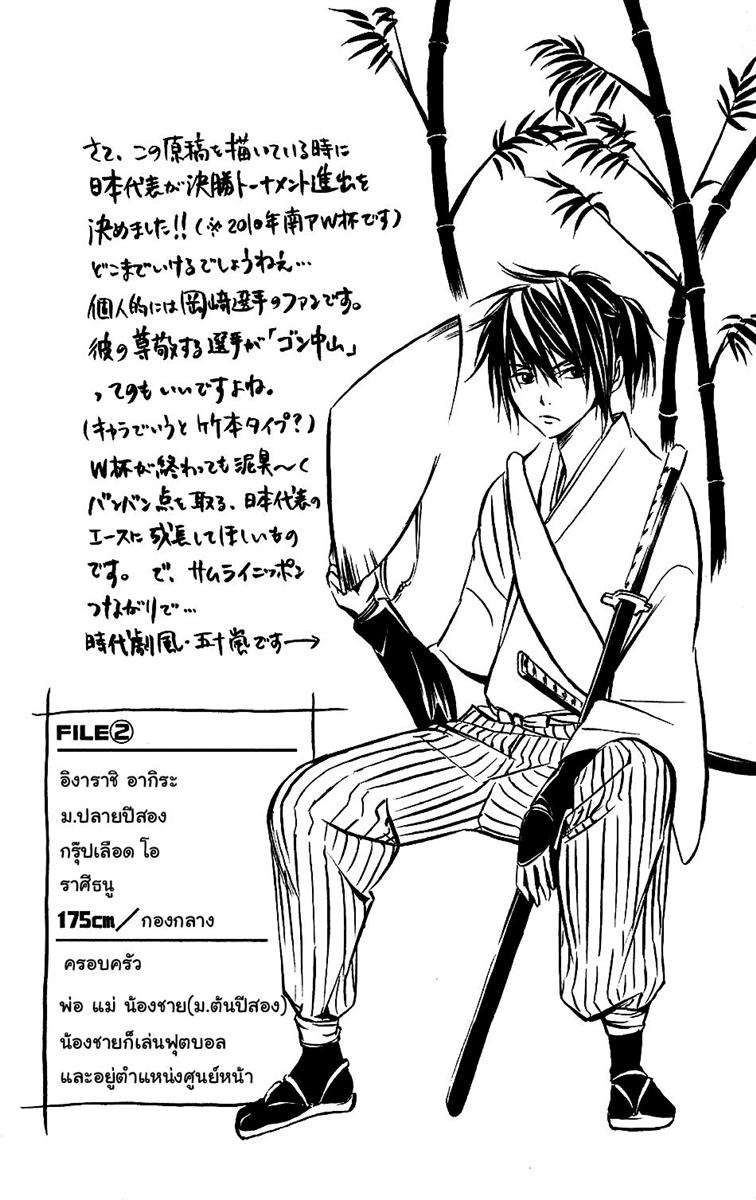 さて、この原稿を描いている時に
日本代表が決勝トーナメント進出を
決めました!!(※2010年南アW杯です)
どこまでいけるでしょうねぇ…
個人的には岡崎選手のファンです。
彼の尊敬する選手が「ゴン中山」
ってのもいいですよね。
(キャラでいうと竹本タイプ?)
W杯が終わっても泥臭〜く
バンバン点を取る、日本代表の
エースに成長してほしいもの
です。で、サムライニッポン
つながりで…
時代劇風・五十嵐です→
FILE②
อิงาราชิ อากิระ
ม.ปลายปีสอง
กรุ๊ปเลือด โอ
ราศีธนู
175cm/กองกลาง
ครอบครัว
พ่อ แม่ น้องชาย(ม.ต้นปีสอง)
น้องชายก็เล่นฟุตบอล
และอยู่ตำแหน่งศูนย์หน้า